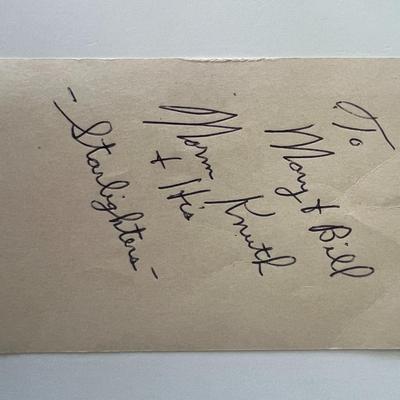 To
Mary & Bill
Norm Knuth
+ His
- Starlighters -